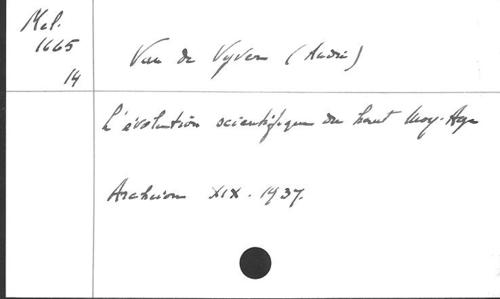 Mel.
1665
14
Van de Vyver (André)
L'évolution scientifique du haut Moy.-Age
Archeion XIX. 1937.